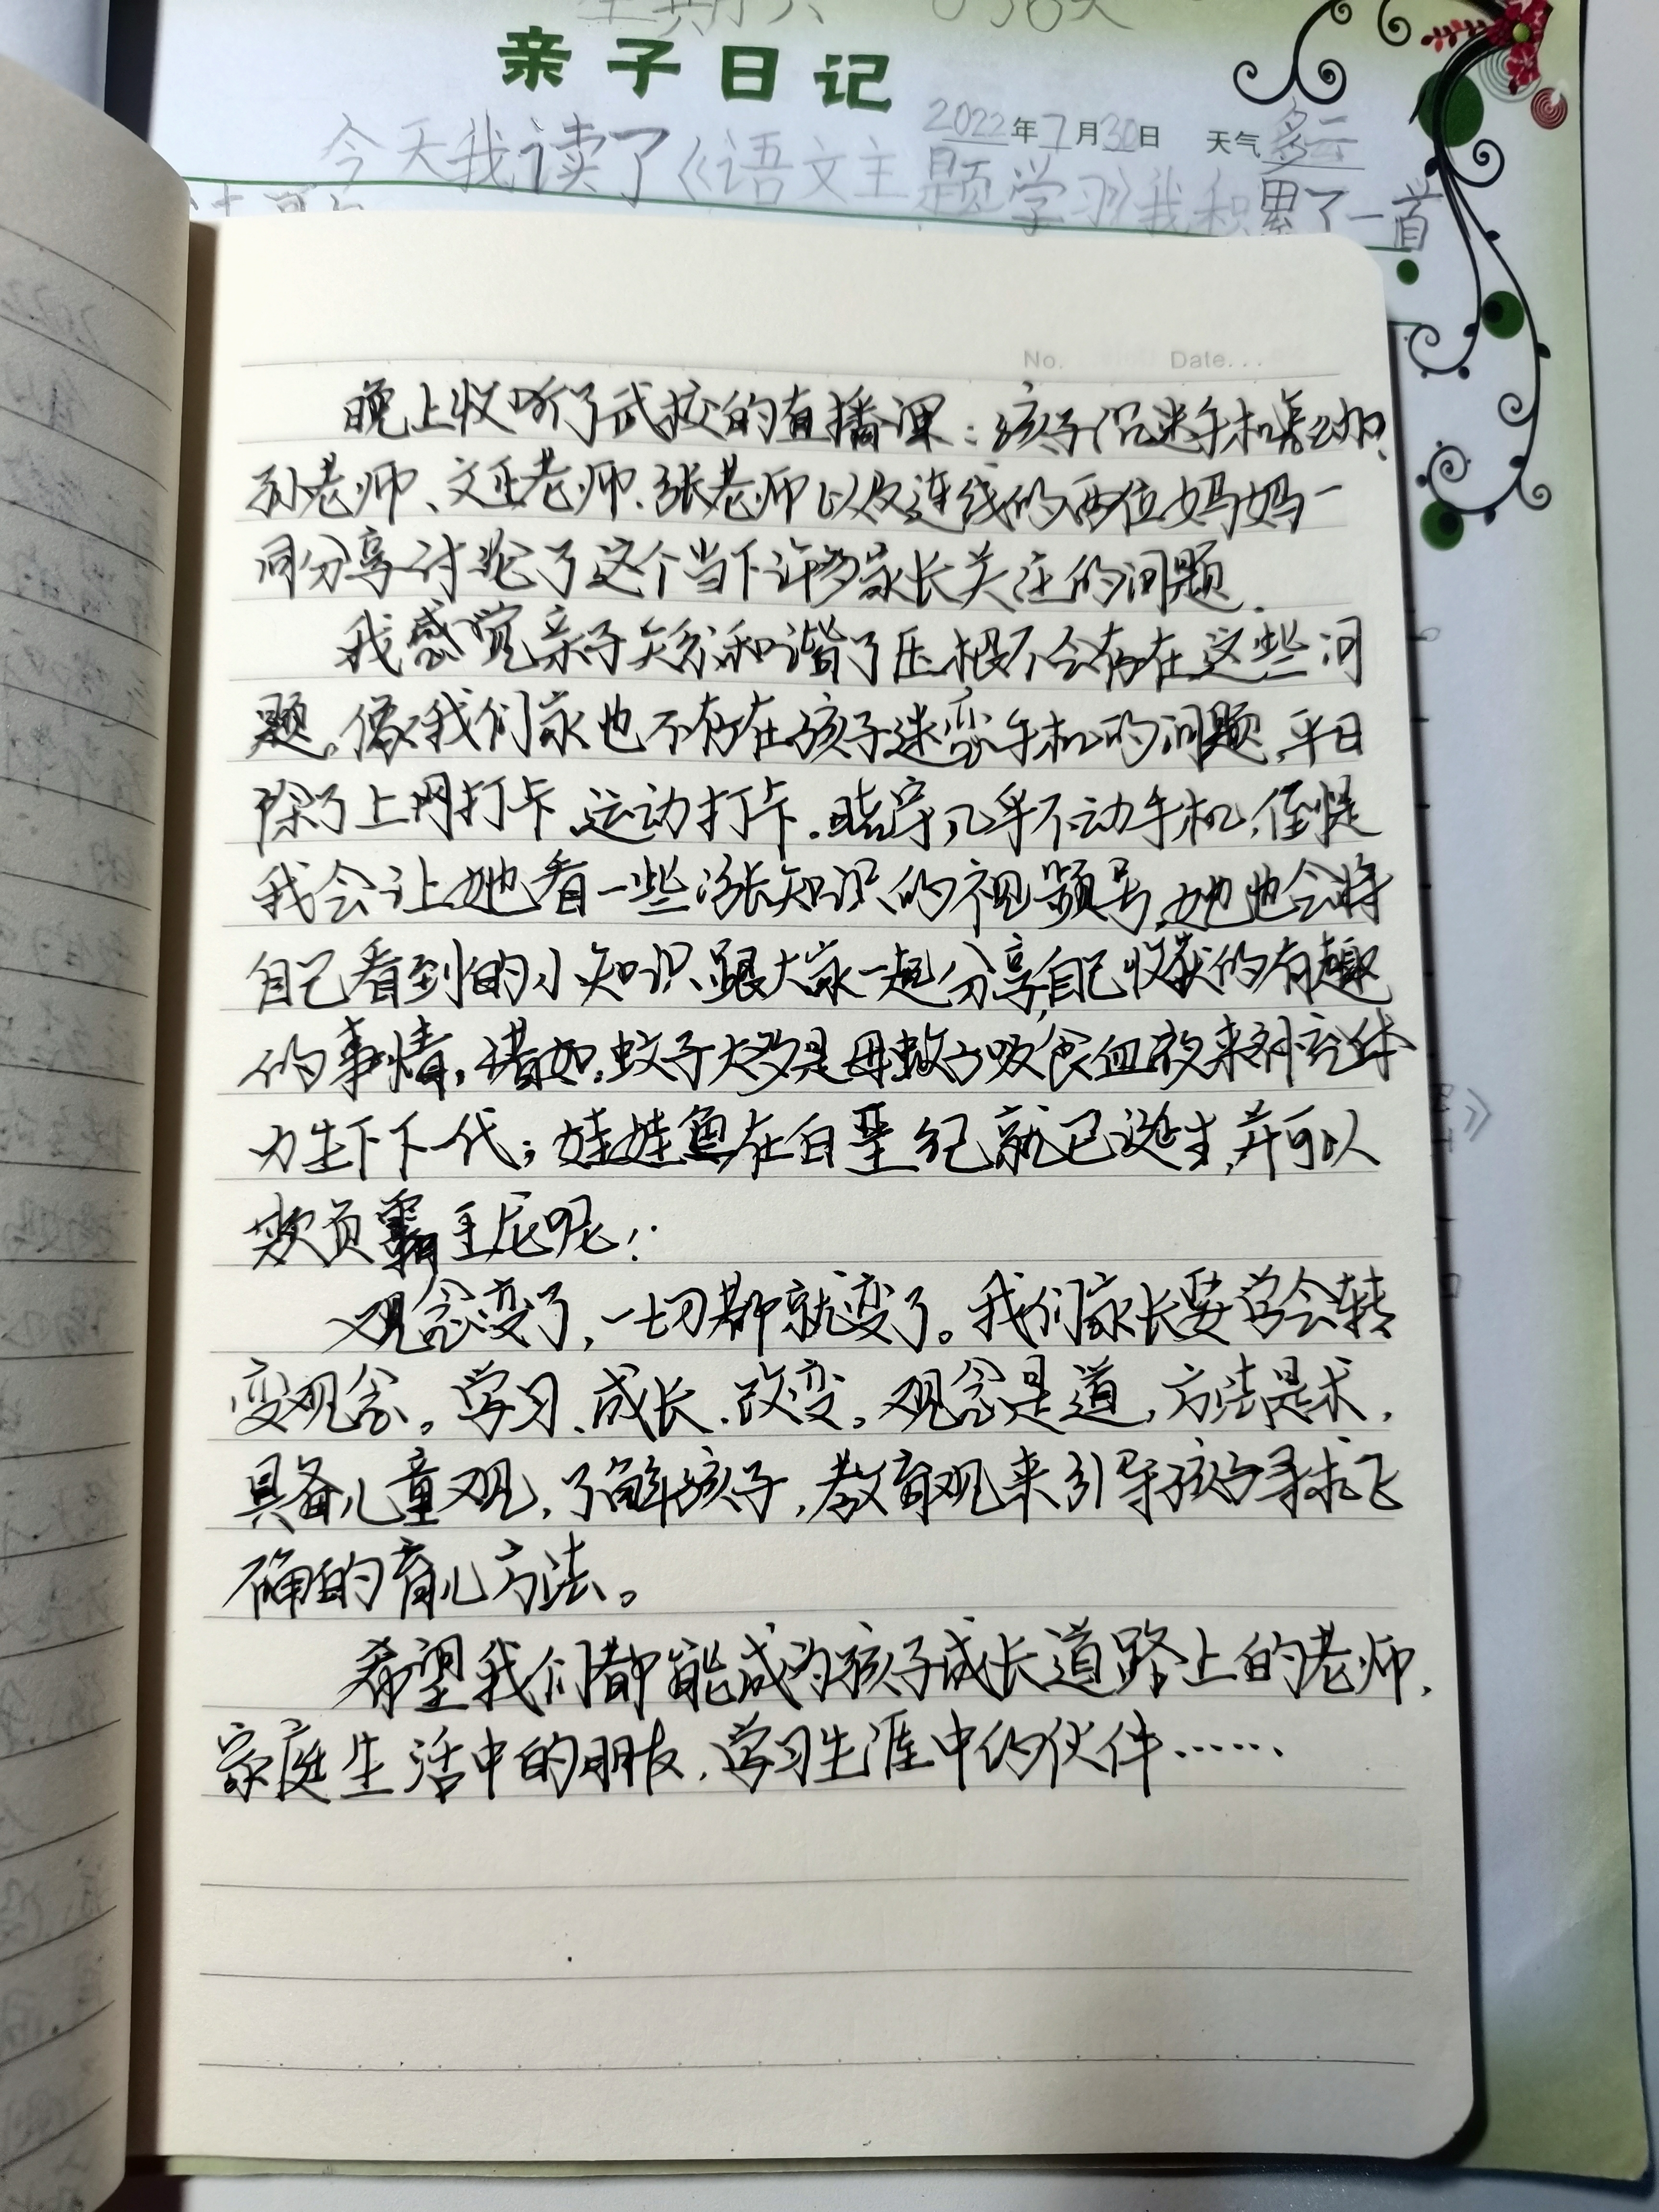 亲子日记
2022年7月30日 天气多云
今天我读了《语文主题学习》我积累了一首
No. Date...
晚上收听了武校的直播课：孩子沉迷手机怎么办？
孙老师、文正老师、张老师以及连线的两位妈妈一
同分享讨论了这个当下许多家长关注的问题.
我感觉亲子关系和谐了压根不会存在这些问
题。像我们家也不存在孩子迷恋手机的问题，平日
除了上网打卡、运动打卡.几乎不动手机，倒是
我会让她看一些涨知识的视频号，她也会将
自己看到的小知识跟大家一起分享，自己收获的有趣
的事情，诸如，蚊子大多是母蚊子吸食血液来补充体
力生下下一代；娃娃鱼在白垩纪就已诞生，并可以
欺负霸王龙呢！
观念变了，一切都就变了。我们家长要学会转
变观念。学习、成长、改变。观念是道，方法是术，
具备儿童观，了解孩子，教育观来引导孩子寻求正
确的育儿方法。
希望我们都能成为孩子成长道路上的老师，
家庭生活中的朋友，学习生涯中的伙伴……